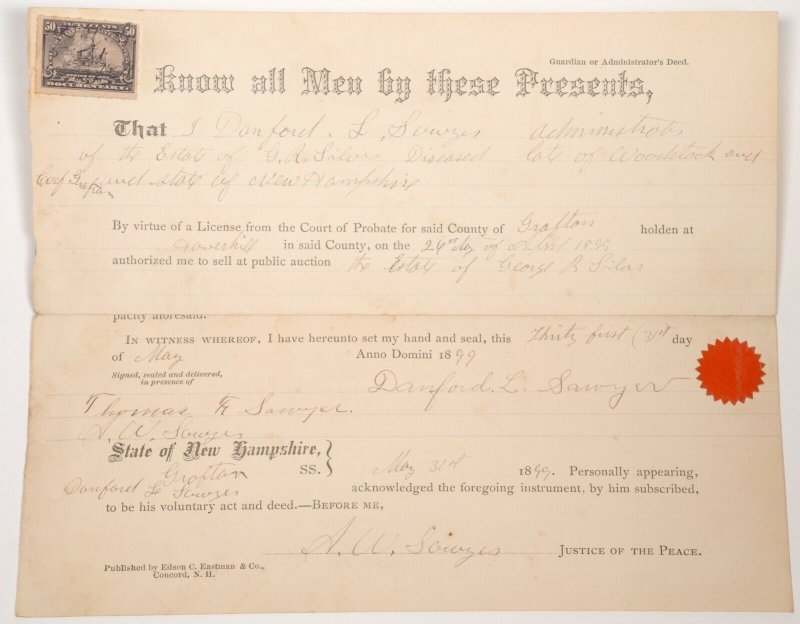 50 FIFTY CENTS 50
DOCUMENTARY
Guardian or Administrator's Deed.
Know all Men by these Presents,
That I Danford. L. Sawyer administrator
of the Estate of G. R. Silver Diseased late of Woodstock and
Co of Grafton and state of New Hampshire
By virtue of a License from the Court of Probate for said County of Grafton holden at
Haverhill in said County, on the 26th day of April 1899
authorized me to sell at public auction the Estate of George R Silver
pacity aforesaid.
IN WITNESS WHEREOF, I have hereunto set my hand and seal, this Thirty first (31st day
of May Anno Domini 1899
Signed, sealed and delivered,
in presence of
Danford. L. Sawyer
Thomas F. Sawyer.
A. W. Sawyer
State of New Hampshire, }
Grafton SS. May 31st 1899. Personally appearing,
Danford L Sawyer acknowledged the foregoing instrument, by him subscribed,
to be his voluntary act and deed.—BEFORE ME,
A. W. Sawyer JUSTICE OF THE PEACE.
Published by Edson C. Eastman & Co.,
Concord, N. H.